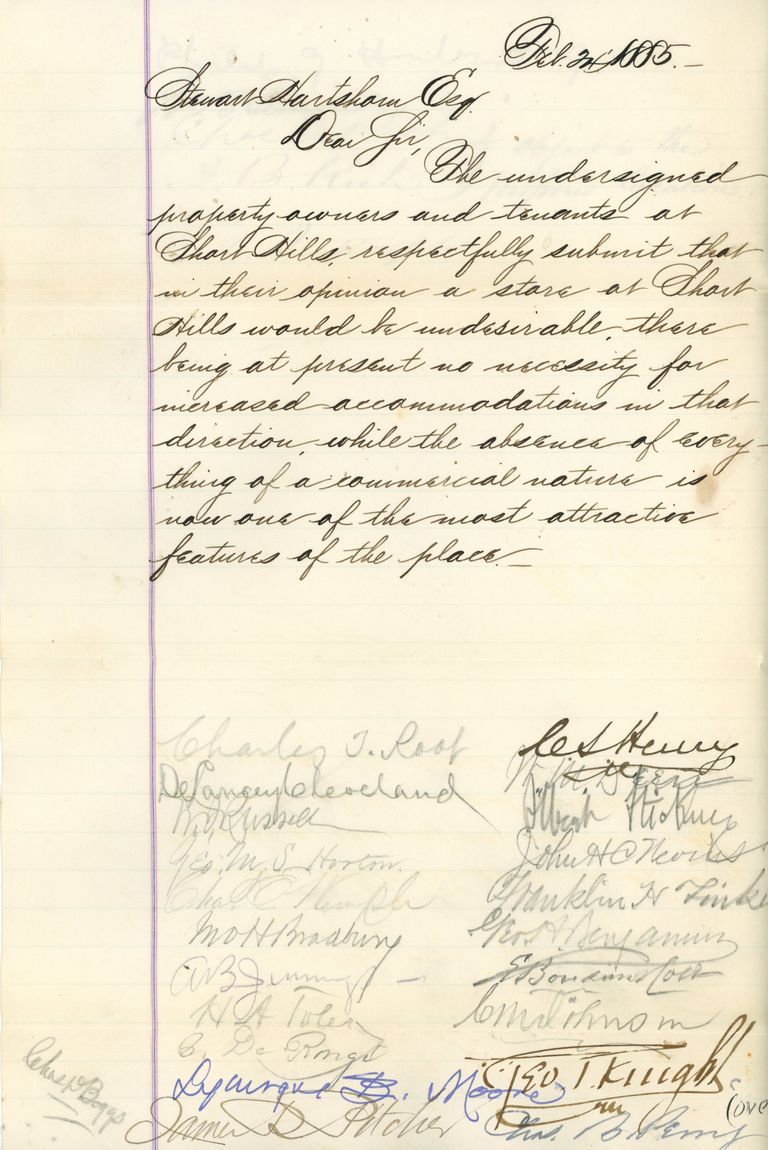 Feb. 24 1885.—
Stewart Hartshorn Esq.
Dear Sir,
The undersigned
property owners and tenants at
Short Hills, respectfully submit that
in their opinion a store at Short
Hills would be undesirable, there
being at present no necessity for
increased accommodations in that
direction, while the absence of every-
thing of a commercial nature is
now one of the most attractive
features of the place.—
Charles T. Root
C S Henry
DeLancey Cleveland
Russell
Geo. M. S. Horton.
John H C Nevius
Chas. C.
Franklin H
Wm H Bradbury
Geo. A. Benjamin
A B Jennings
Colt
H A Toler
Johnson
C De Rongé
Geo T Knight
B. Moore
(over
Chas D Boggs
James D Pitcher
Chas. B. Perry